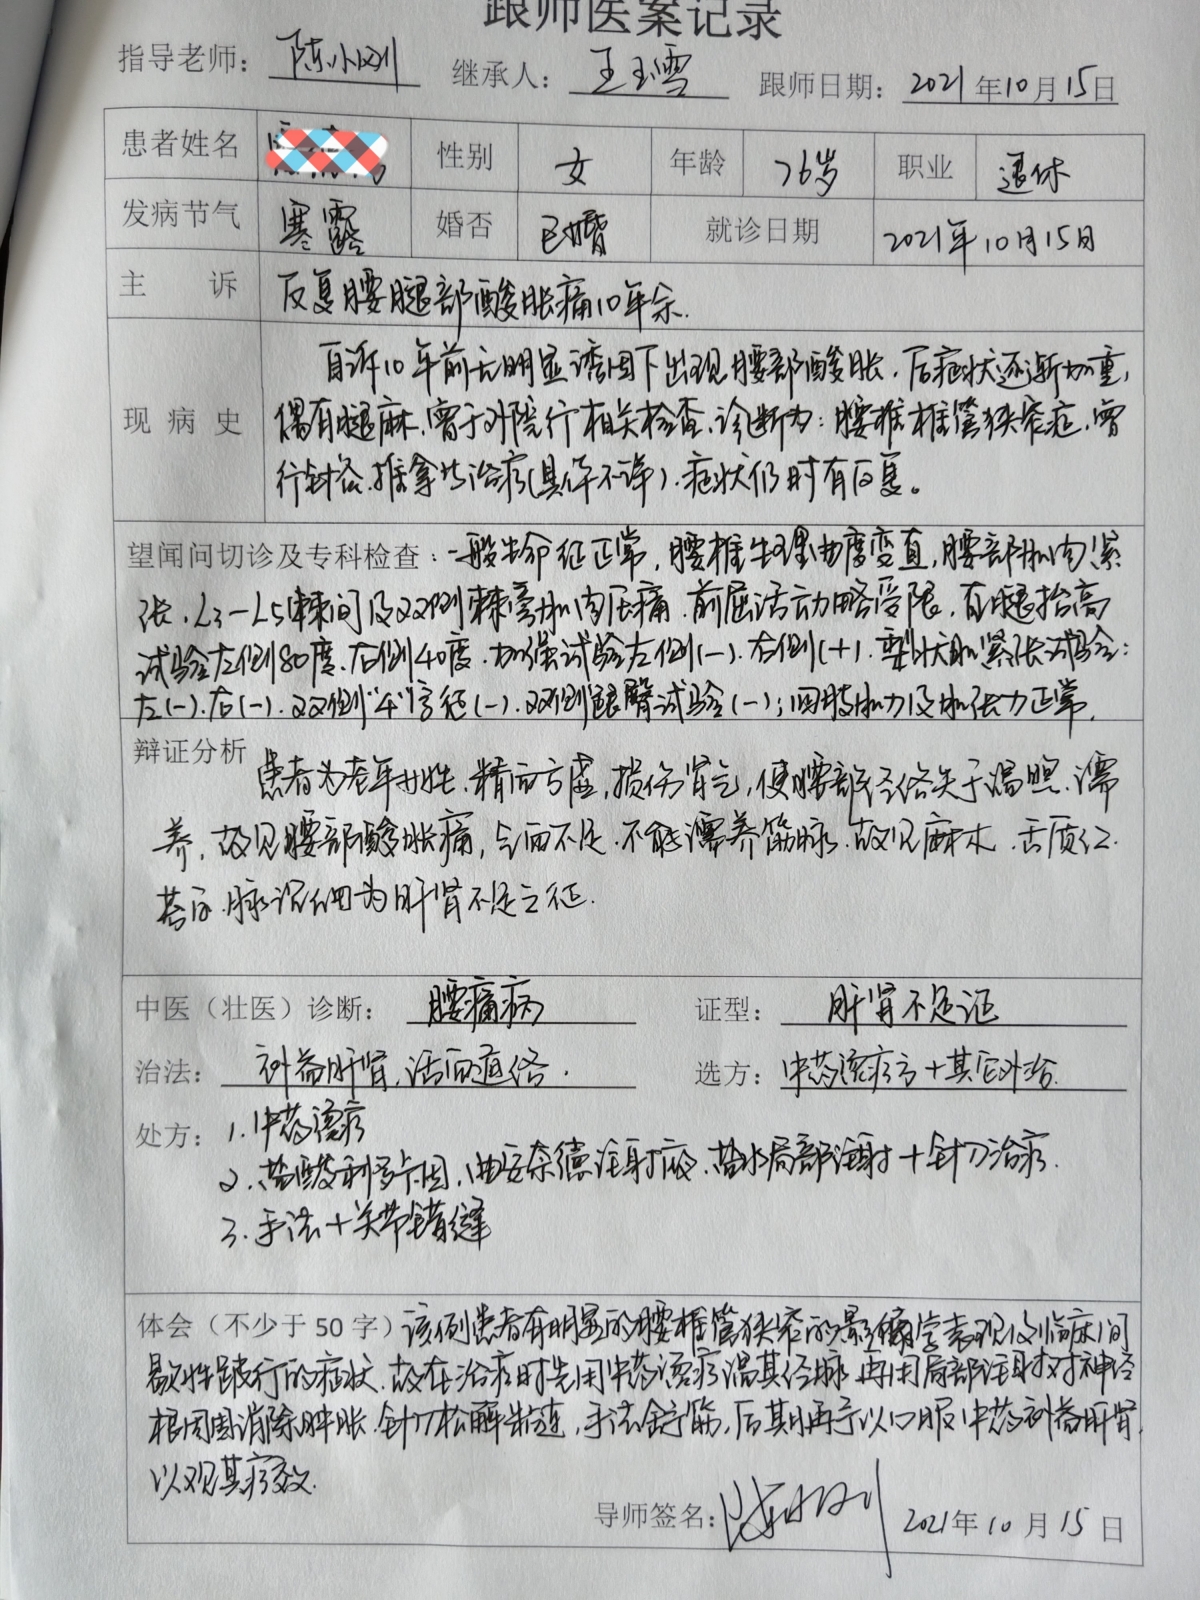 跟师医案记录
指导老师： 陈小刚 继承人： 王玉雪 跟师日期： 2021年10月15日
患者姓名 性别 女 年龄 76岁 职业 退休
发病节气 寒露 婚否 已婚 就诊日期 2021年10月15日
主 诉 反复腰腿部酸胀痛10年余.
自诉10年前无明显诱因下出现腰部酸胀，后症状逐渐加重，
现 病 史 偶有腿麻，曾于外院行相关检查，诊断为：腰椎椎管狭窄症，曾
行针灸、推拿等治疗(具体不详)，症状仍时有反复。
望闻问切诊及专科检查：一般生命征正常，腰椎生理曲度变直，腰部肌肉紧
张，L3-L5棘间及双侧棘旁肌肉压痛，前屈活动略受限，直腿抬高
试验左侧80度、右侧40度，加强试验左侧(-)、右侧(+)，梨状肌紧张试验：
左(-)、右(-)，双侧“4”字征(-)，双侧跟臀试验(-)；四肢肌力及肌张力正常.
辩证分析 患者为老年女性，精血亏虚，损伤肾气，使腰部经络失于温煦、濡
养，故见腰部酸胀痛，气血不足，不能濡养筋脉，故见麻木，舌质红.
苔白，脉沉细为肝肾不足之征.
中医（壮医）诊断： 腰痛病 证型： 肝肾不足证
治法： 补益肝肾，活血通络. 选方： 中药烫疗方+其它外治.
处方： 1.中药烫疗
2.盐酸利多卡因，曲安奈德注射液，盐水局部注射+针刀治疗.
3.手法+关节错缝
体会（不少于50字）该例患者有明显的腰椎管狭窄的影像学表现及临床间
歇性跛行的症状，故在治疗时先用中药烫疗温其经脉，再用局部注射对神经
根周围消除肿胀，针刀松解粘连，手法舒筋，后期再予以口服中药补益肝肾，
以观其疗效.
导师签名： 陈小刚 2021年10月15日